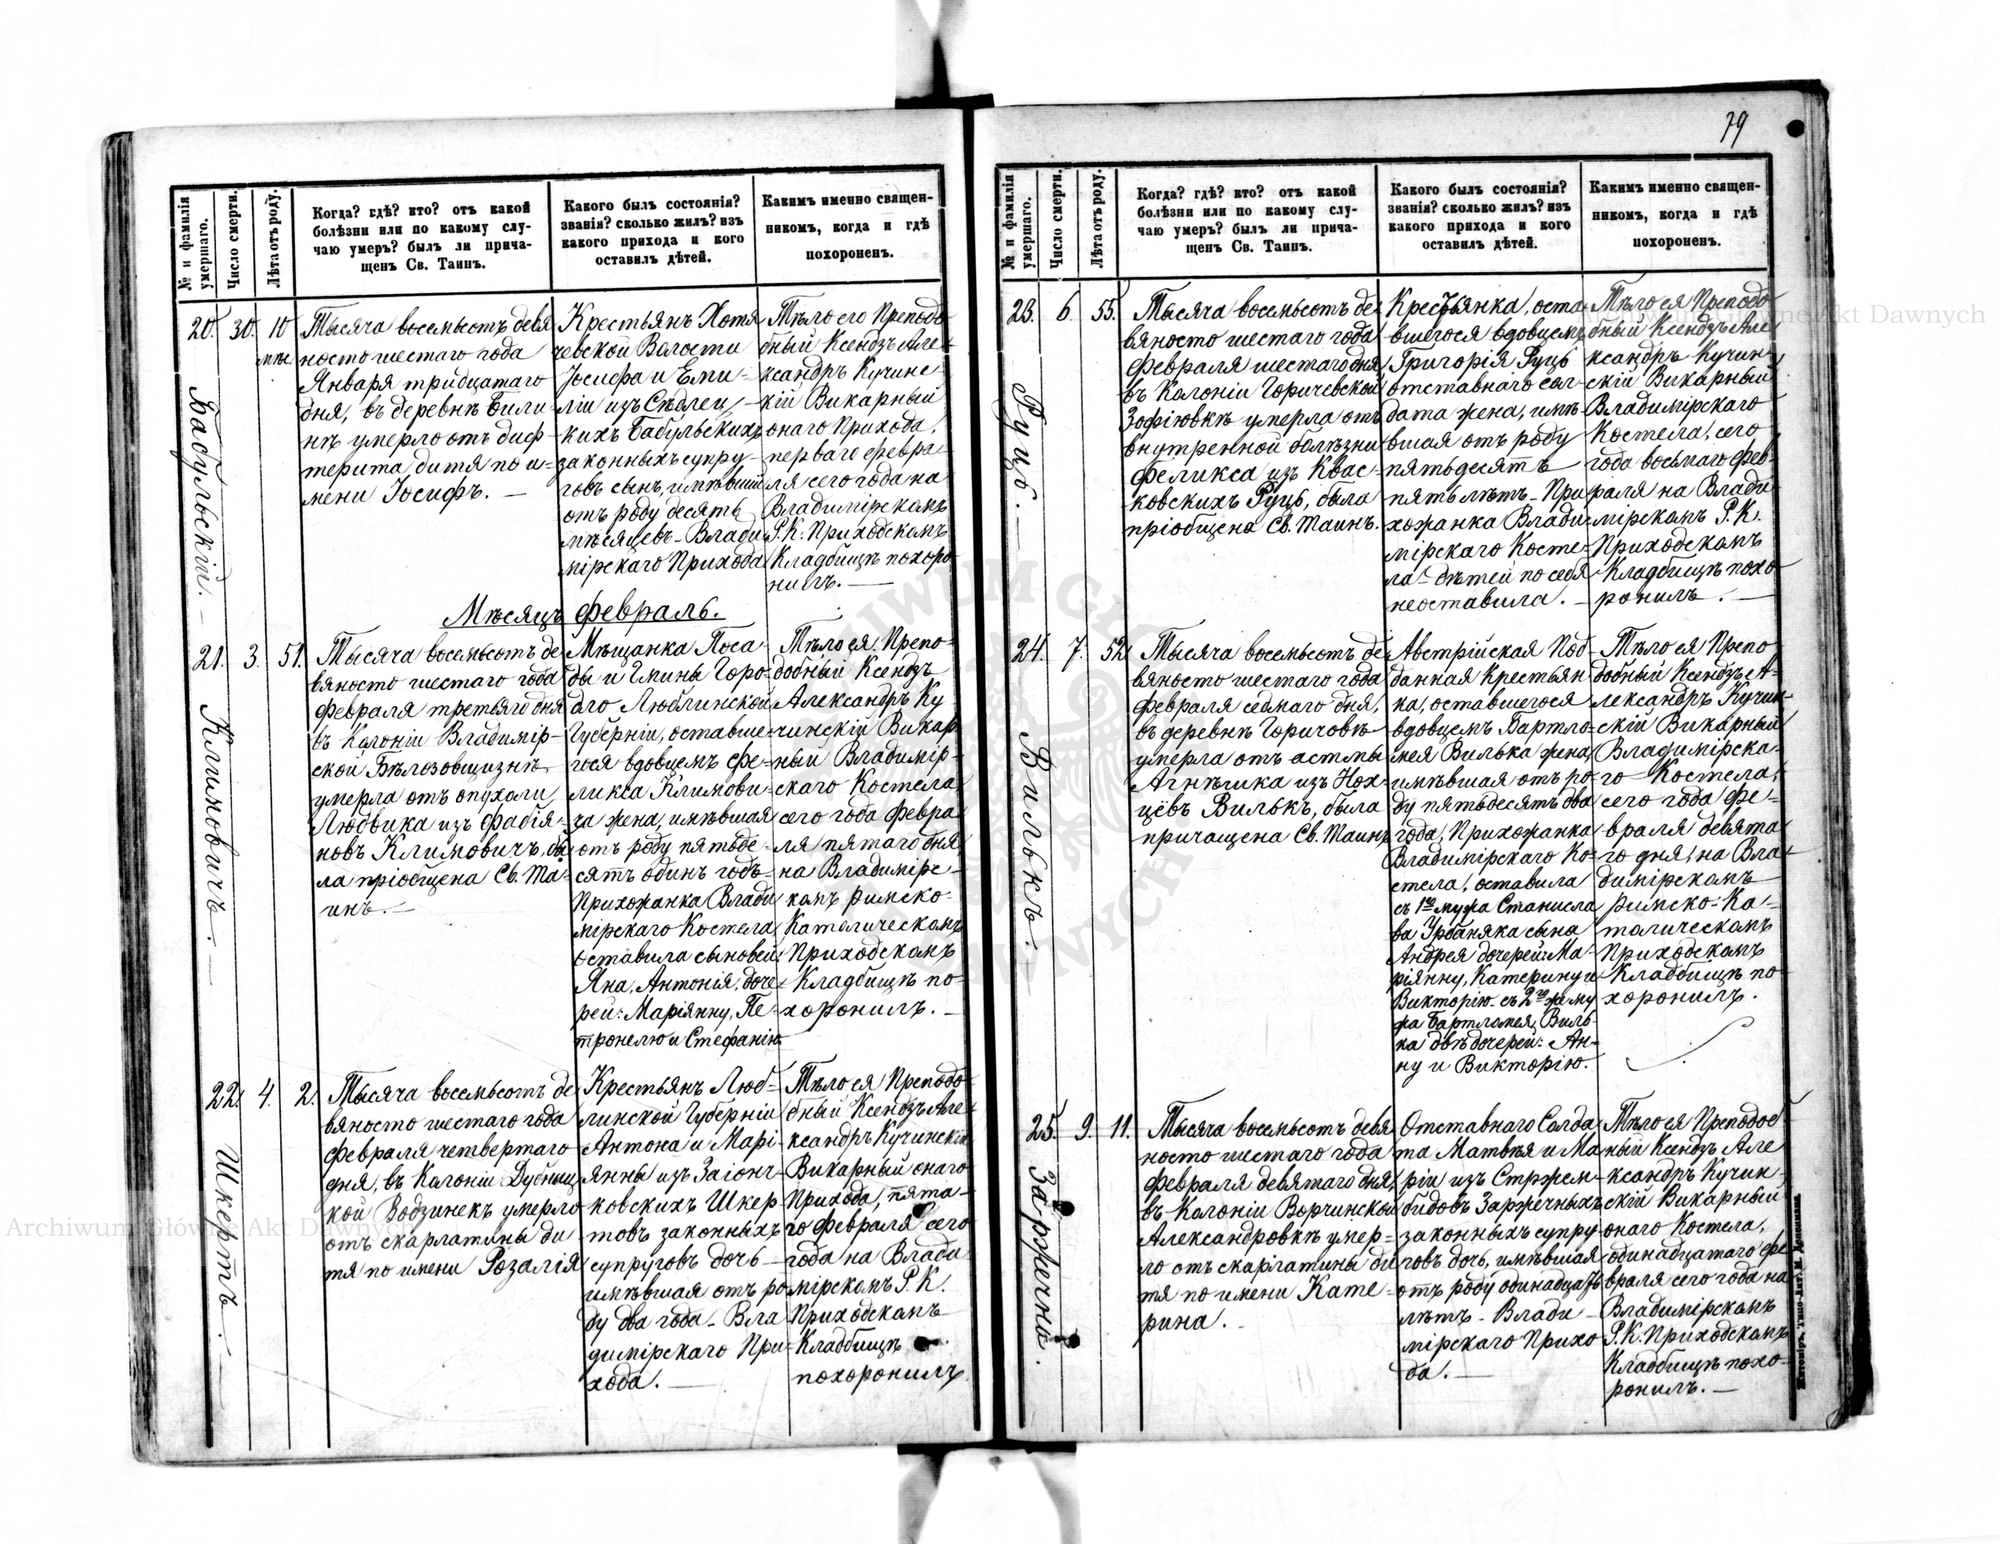 79
№ и фамилія умершаго.
Число смерти.
Лѣта отъ роду.
Когда? гдѣ? кто? отъ какой
болѣзни или по какому слу-
чаю умеръ? былъ ли прича-
щенъ Св. Таинъ.
Какого былъ состоянія?
званія? сколько жилъ? изъ
какого прихода и кого
оставилъ дѣтей.
Какимъ именно священ-
никомъ, когда и гдѣ
похороненъ.
20. 30. 10
мѣс.
Бабульскій. —
Тысяча восемьсотъ девя
носто шестаго года
Января тридцатаго
дня, въ деревнѣ Били
нѣ умерло отъ диф-
терита дитя по и-
мени Іосифъ. —
Крестьянъ Хотя
чевской Волости
Іосифа и Еми-
ліи изъ Сѣдлец-
кихъ Бабульскихъ
законныхъ супру-
говъ сынъ, имѣвшій
отъ роду десять
мѣсяцевъ - Влади
мірскаго Прихода
Тѣло его Преподо
бный Ксендзъ Але-
ксандръ Кучинс
кій Викарный
онаго Прихода,
перваго февра-
ля сего года на
Владимірскомъ
Р. К. Приходскомъ
Кладбищѣ похоро
нилъ. —
Мѣсяцъ февраль.
21. 3. 51.
Климовичъ. —
Тысяча восемьсотъ де
вяносто шестаго года
февраля третьяго дня
въ Колоніи Владимір-
ской Бѣлозовщизнѣ
умерла отъ опухоли
Людвика изъ Фабія-
новъ Климовичъ, бы
ла пріобщена Св. Та-
инъ. —
Мѣщанка Поса
ды и Гмины Горо-
дло Люблинской
Губерніи, оставше-
гося вдовцемъ Фе-
ликса Климови-
ча жена, имѣвшая
отъ роду пятьде-
сятъ одинъ годъ-
Прихожанка Влади
мірскаго Костела
оставила сыновей
Яна, Антонія, доче-
рей: Маріянну, Пе-
тронелю и Стефанію
Тѣло ея Препо-
добный Ксендзъ
Александръ Ку
чинскій Викар-
ный Владимір-
скаго Костела,
сего года февра
ля пятаго дня,
на Владимірс-
комъ Римско-
Католическомъ
Приходскомъ
Кладбищѣ по-
хоронилъ. —
22. 4. 2.
Шкертъ. —
Тысяча восемьсотъ де
вяносто шестаго года
февраля четвертаго
дня, въ Колоніи Дубниц
кой Водзинекъ умерло
отъ скарлатины ди
тя по имени Розалія
Крестьянъ Люб-
линской Губерніи
Антона и Марі-
янны изъ Загонч-
ковскихъ Шкер
товъ законныхъ
супруговъ дочь —
имѣвшая отъ ро
ду два года - Вла
димірскаго При-
хода. —
Тѣло ея Преподо-
бный Ксендзъ Але-
ксандръ Кучинскій
Викарный онаго
Прихода, пята-
го февраля сего
года на Влади
мірскомъ Р. К.
Приходскомъ
Кладбищѣ
похоронилъ
№ и фамилія умершаго.
Число смерти.
Лѣта отъ роду.
Когда? гдѣ? кто? отъ какой
болѣзни или по какому слу-
чаю умеръ? былъ ли прича-
щенъ Св. Таинъ.
Какого былъ состоянія?
званія? сколько жилъ? изъ
какого прихода и кого
оставилъ дѣтей.
Какимъ именно священ-
никомъ, когда и гдѣ
похороненъ.
23. 6. 55.
Руцъ. —
Тысяча восемьсотъ де
вяносто шестаго года
февраля шестаго дня,
въ Колоніи Горичевской
Зофіовкѣ умерла отъ
внутренной болѣзни
Феликса изъКвас-
ковскихъ Руцъ, была
пріобщена Св. Таинъ.
Крестьянка, оста
вшегося вдовцемъ
Григорія Руцъ
отставнаго сол-
дата жена, имѣ
вшая отъ роду
пятьдесятъ
пять лѣтъ - При
хожанка Влади-
мірскаго Косте-
ла - дѣтей по себѣ
неоставила. —
Тѣло ея Преподо
бный Ксендзъ Але
ксандръ Кучин-
скій Викарный
Владимірскаго
Костела, сего
года восьмаго фев-
раля на Влади
мірскомъ Р. К.
Приходскомъ
Кладбищѣ похо
ронилъ. —
24. 7. 52.
Вилькъ. —
Тысяча восемьсотъ де
вяносто шестаго года
февраля седмаго дня,
въ деревнѣ Горичовѣ
умерла отъ астмы
Агнѣшка изъ Нох-
цёвъ Вилькъ, была
причащена Св. Таинъ
Австрійская Под
данная Крестьян
ка, оставшегося
вдовцемъ Бартло-
мея Вилька жена,
имѣвшая отъ ро-
ду пятьдесятъ два
года, Прихожанка
Владимірскаго Ко-
стела, оставила
съ 1го мужа Станисла
ва Урбаняка сына
Андрея дочерей: Ма-
ріянну, Катерину и
Викторію съ 2го же му
жа Бартломея Виль-
ка двѣ дочерей: Ан-
ну и Викторію.
Тѣло ея Препо
добный Ксендзъ А-
лександръ Кучин-
скій Викарный
Владимірска-
го Костела,
сего года фе-
враля девята
го дня, на Вла-
димірскомъ
Римско-Ка-
толическомъ
Приходскомъ
Кладбищѣ по-
хоронилъ.
25. 9. 11.
Заржечна.
Тысяча восемьсотъ девя
носто шестаго года
февраля девятаго дня,
въ Колоніи Ворчинской
Александровкѣ умер-
ло отъ скарлатины ди
тя по имени Кате-
рина. -
Отставнаго Солда
та Матвѣя и Ма
ріи изъ Стржем-
бидовъ Заржечныхъ
законныхъ супру-
говъ дочь, имѣвшая
отъ роду одинадцать
лѣтъ - Влади-
мірскаго Прихо
да. —
Тѣло ея Преподоб
ный Ксендзъ Але
ксандръ Кучин-
скій Викарный
онаго Костела,
одинадцатаго фе-
враля сего года на
Владимірскомъ
Р. К. Приходскомъ
Кладбищѣ похо-
ронилъ. —
Archiwum Główne Akt Dawnych
Archiwum Główne Akt Dawnych